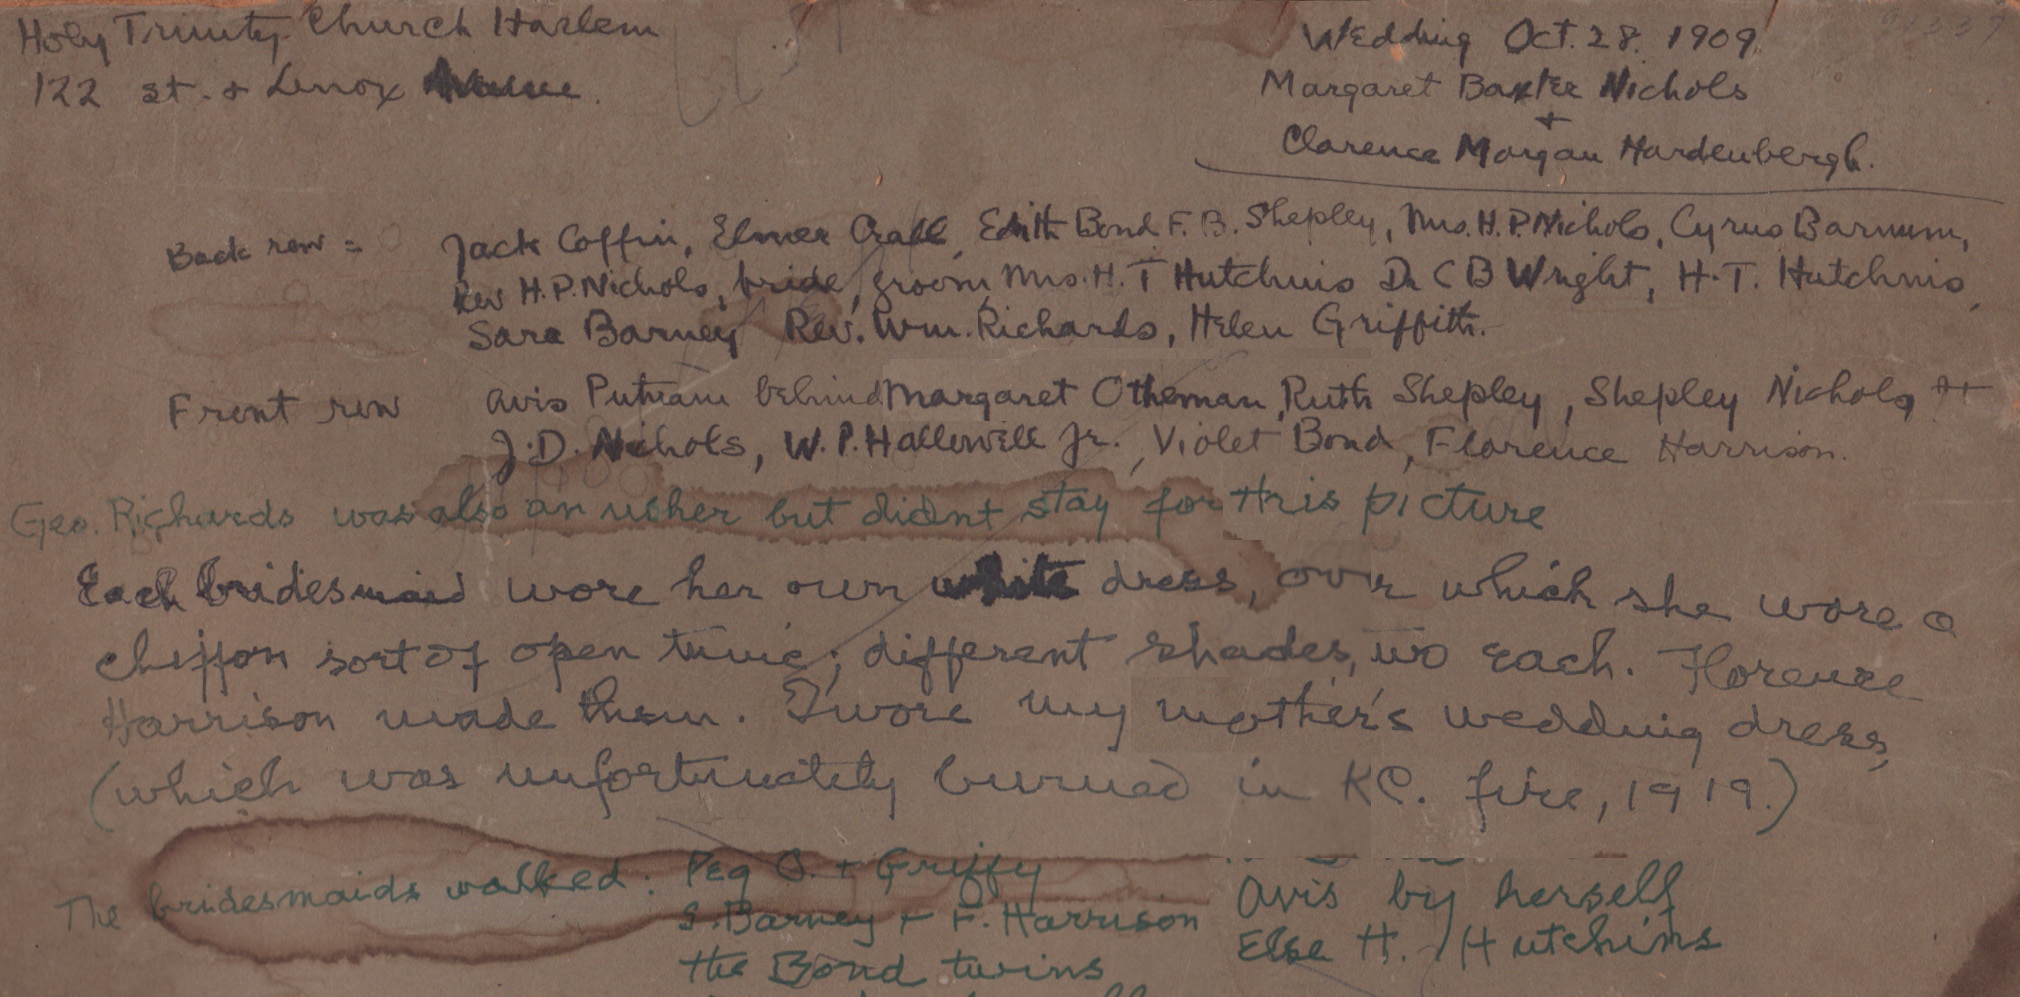 Holy Trinity Church Harlem
122 st. + Lenox Avenue.
Wedding Oct. 28. 1909
Margaret Baxter Nichols
+
Clarence Morgan Hardenbergh.
Back row = Jack Coffin, Elmer Crall, Edith Bond F. B. Shepley, Mrs. H. P. Nichols, Cyrus Barnum,
Rev H. P. Nichols, bride, groom, Mrs. H. T Hutchins Dr C B Wright, H. T. Hutchins,
Sara Barney Rev. Wm. Richards, Helen Griffith.
Front row Avis Putnam behind Margaret Otheman, Ruth Shepley, Shepley Nichols
J. D. Nichols, W. P. Hallowell Jr., Violet Bond, Florence Harrison.
Geo. Richards was also an usher but didnt stay for this picture
Each bridesmaid wore her own white dress, over which she wore a
chiffon sort of open tunic; different shades, each. Florence
Harrison made them. I wore my mother's wedding dress,
(which was unfortunately burned in KC. fire, 1919.)
The bridesmaids walked: Peg O. + Griffy
S. Barney + F. Harrison
the Bond twins
Avis by herself
Else H. Hutchins